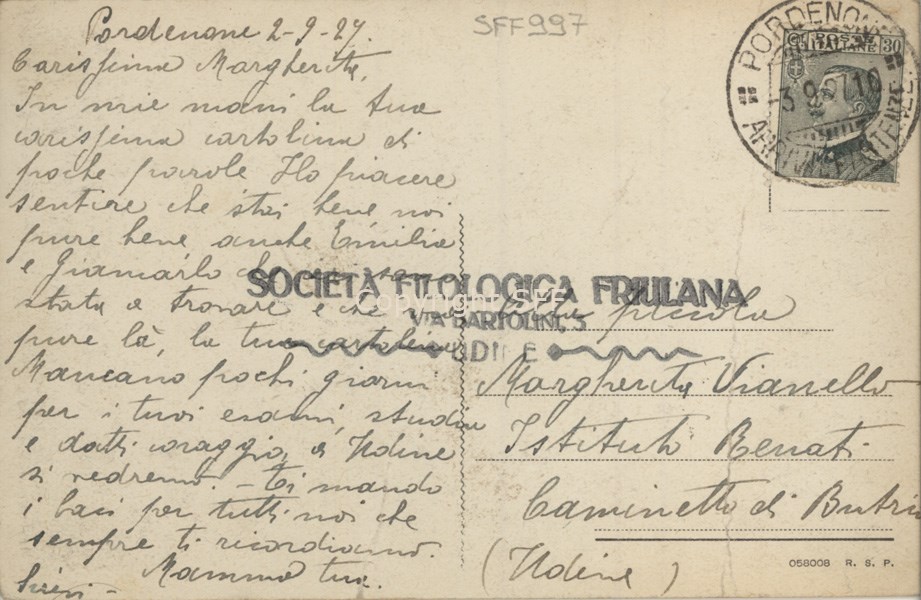 Pordenone 2-9-27.
SFF997
Carissima Margherita,
In mie mani la tua
carissima cartolina di
poche parole Ho piacere
sentire che stai bene noi
pure bene anche Emilia
e Giancarlo che
stata a trovare e che
pure là, la tua cartolina
Mancano pochi giorni
per i tuoi esami, studia
e datti coraggio, a Udine
si vedremo - Ti mando
i baci per tutti noi che
sempre ti ricordiamo.
Mamma tua.
PORDENONE
3.9.27.16
POSTE
ITALIANE
30
SOCIETÀ FILOLOGICA FRIULANA
Copyright SFF
VIA BARTOLINI, 3
UDINE
piccola
Margherita Vianello
Istituto Renati
Caminetto di Butrio
(Udine)
058008 R. S. P.